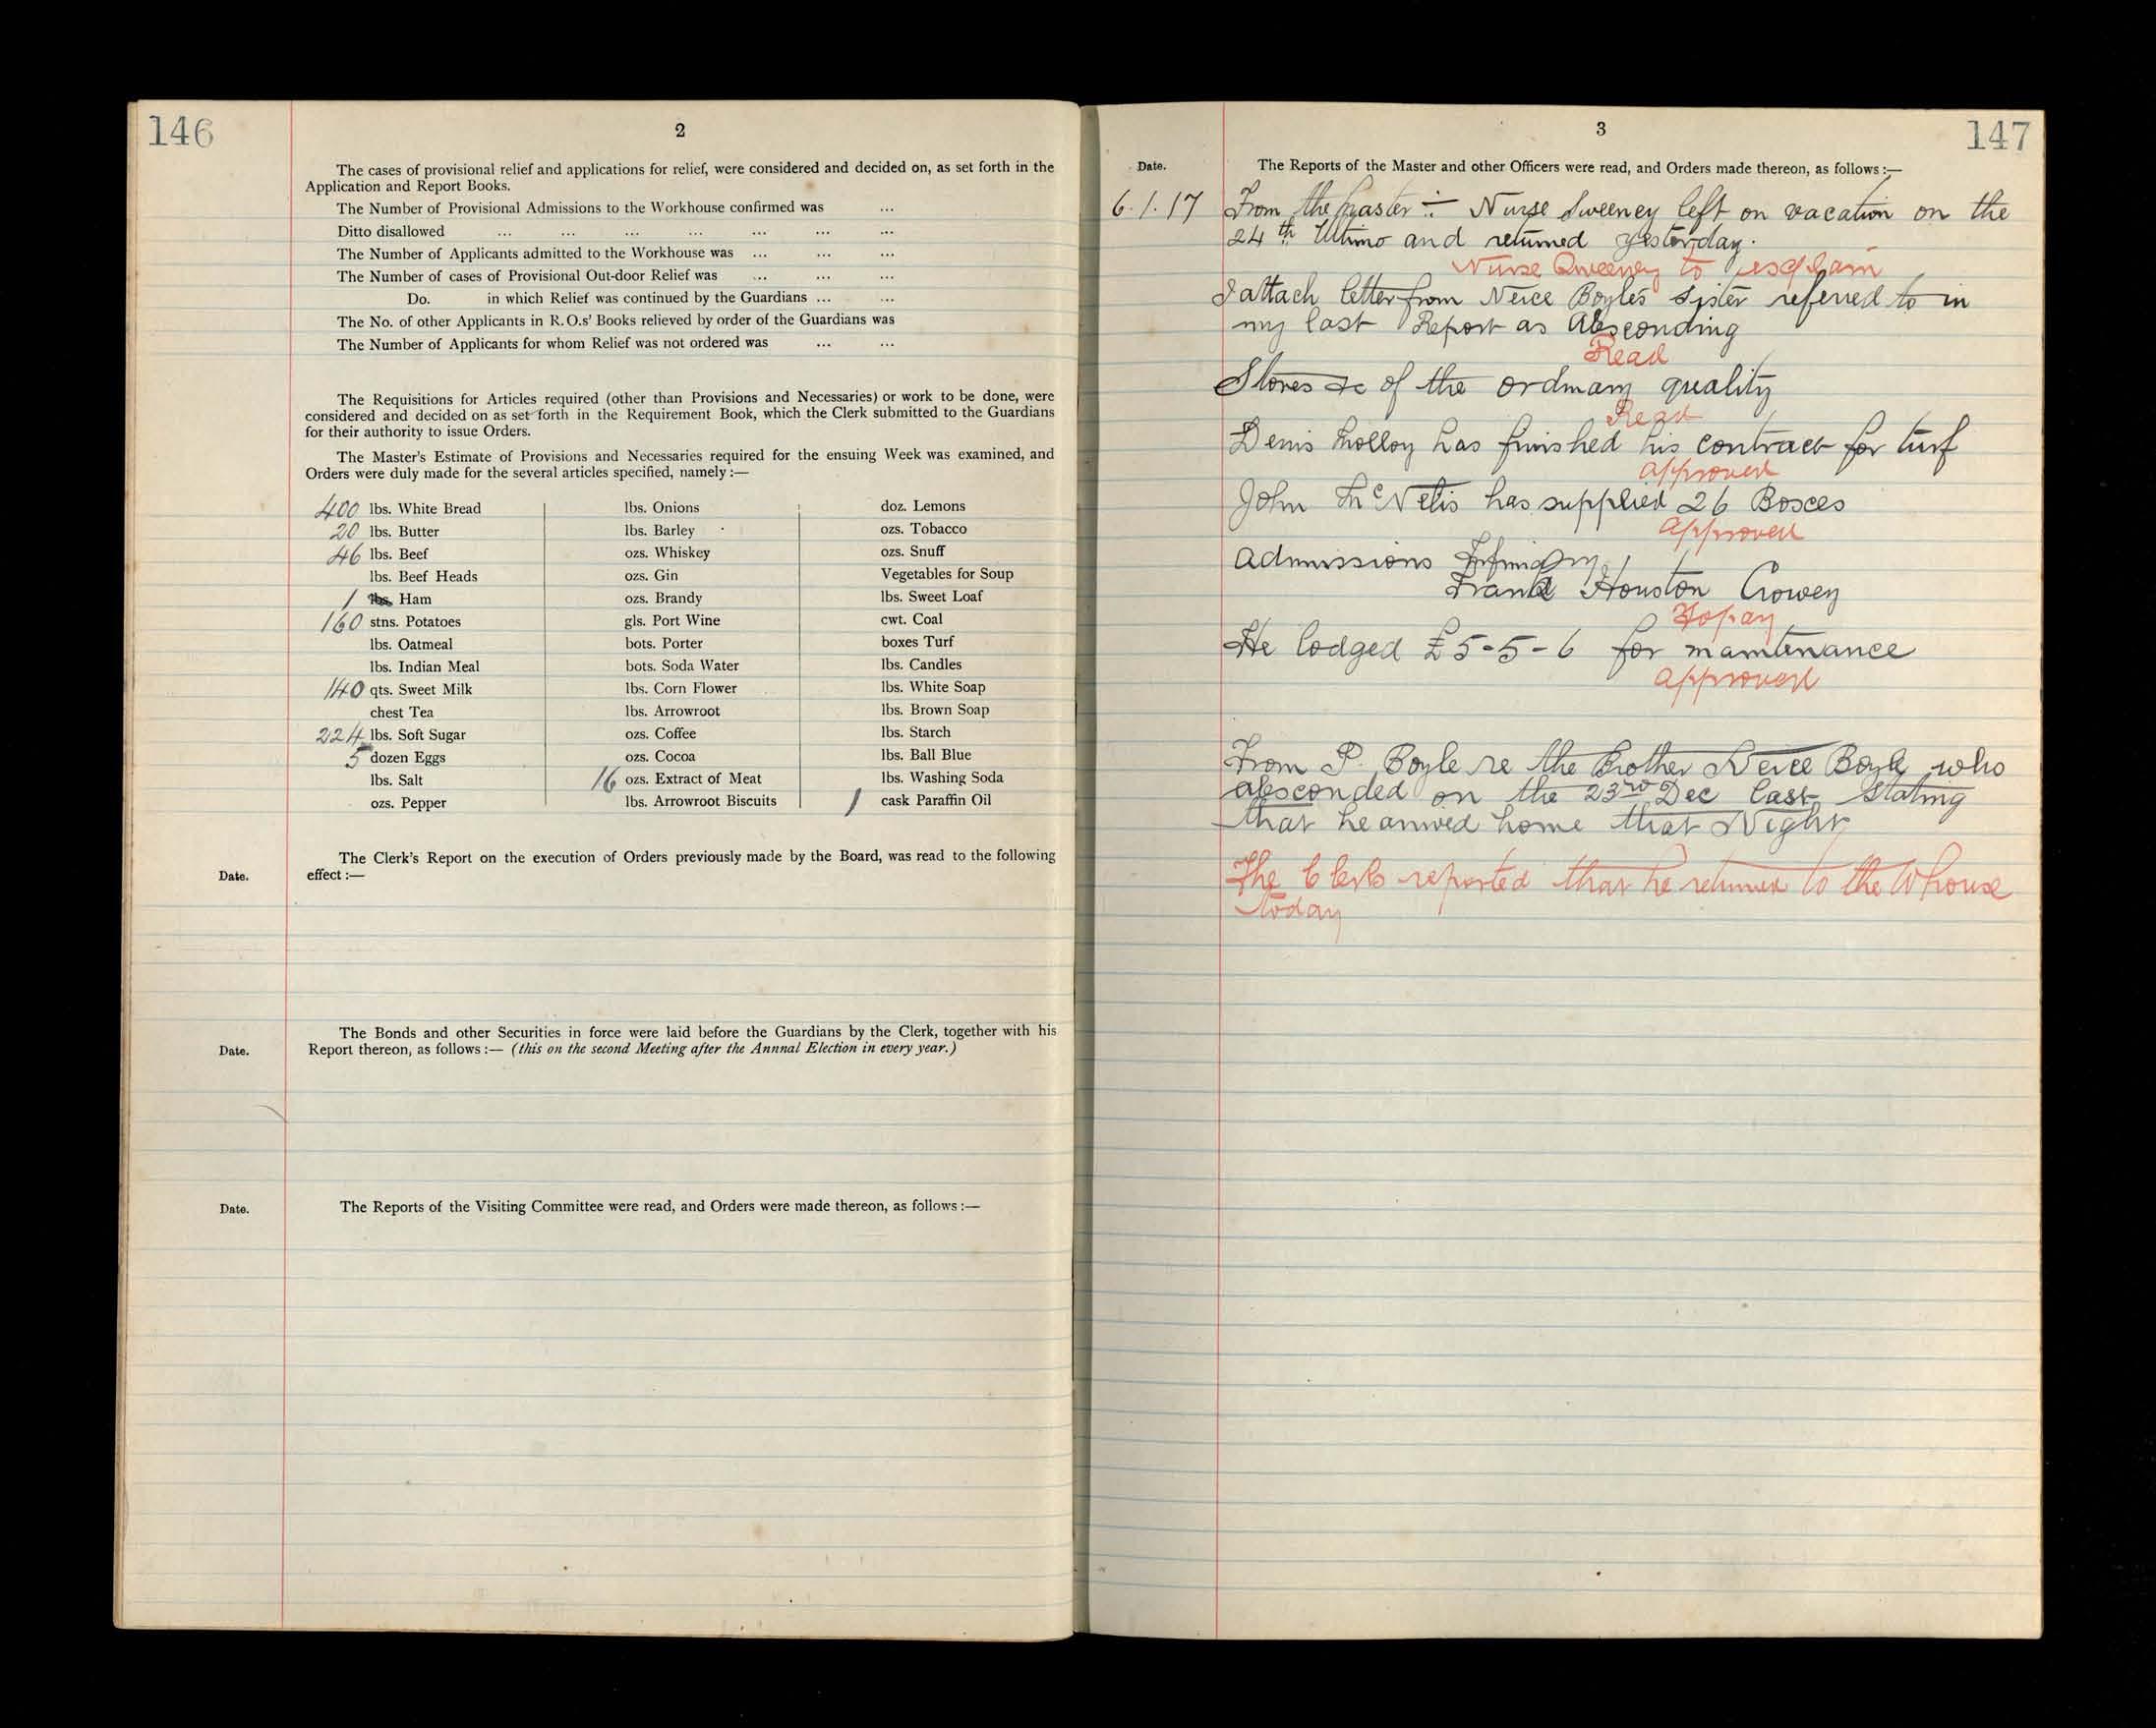 146
2
The cases of provisional relief and applications for relief, were considered and decided on, as set forth in the
Application and Report Books.
The Number of Provisional Admissions to the Workhouse confirmed was ...
Ditto disallowed ... ... ... ... ... ... ...
The Number of Applicants admitted to the Workhouse was ... ... ...
The Number of cases of Provisional Out-door Relief was ... ... ...
Do. in which Relief was continued by the Guardians ... ...
The No. of other Applicants in R.O.s' Books relieved by order of the Guardians was
The Number of Applicants for whom Relief was not ordered was ... ...
The Requisitions for Articles required (other than Provisions and Necessaries) or work to be done, were
considered and decided on as set forth in the Requirement Book, which the Clerk submitted to the Guardians
for their authority to issue Orders.
The Master's Estimate of Provisions and Necessaries required for the ensuing Week was examined, and
Orders were duly made for the several articles specified, namely :—
400 lbs. White Bread
20 lbs. Butter
46 lbs. Beef
lbs. Beef Heads
1 lbs. Ham
160 stns. Potatoes
lbs. Oatmeal
lbs. Indian Meal
140 qts. Sweet Milk
chest Tea
224 lbs. Soft Sugar
5 dozen Eggs
lbs. Salt
ozs. Pepper
lbs. Onions
lbs. Barley
ozs. Whiskey
ozs. Gin
ozs. Brandy
gls. Port Wine
bots. Porter
bots. Soda Water
lbs. Corn Flower
lbs. Arrowroot
ozs. Coffee
ozs. Cocoa
16 ozs. Extract of Meat
lbs. Arrowroot Biscuits
doz. Lemons
ozs. Tobacco
ozs. Snuff
Vegetables for Soup
lbs. Sweet Loaf
cwt. Coal
boxes Turf
lbs. Candles
lbs. White Soap
lbs. Brown Soap
lbs. Starch
lbs. Ball Blue
lbs. Washing Soda
1 cask Paraffin Oil
The Clerk's Report on the execution of Orders previously made by the Board, was read to the following
Date. effect :—
The Bonds and other Securities in force were laid before the Guardians by the Clerk, together with his
Date. Report thereon, as follows :— (this on the second Meeting after the Annnal Election in every year.)
Date. The Reports of the Visiting Committee were read, and Orders were made thereon, as follows :—
3
147
Date. The Reports of the Master and other Officers were read, and Orders made thereon, as follows :—
6.1.17 From the Master :— Nurse Sweeney left on vacation on the
24th Ultimo and returned yesterday.
Nurse Sweeney to explain
I attach letter from Neice Boyle's Sister referred to in
my last Report as Absconding
Read
Stores &c of the ordinary quality
Read
Denis Molloy has finished his contract for turf
Approved
John McNelis has supplied 26 Boxes
Approved
Admissions Infirmary
Frank Houston Crowey
To pay
He lodged £5-5-6 for maintenance
Approved
From P. Boyle re the Brother Neice Boyle who
absconded on the 23rd Dec last stating
that he arrived home that Night
The Clerk reported that he returned to the Whouse
today